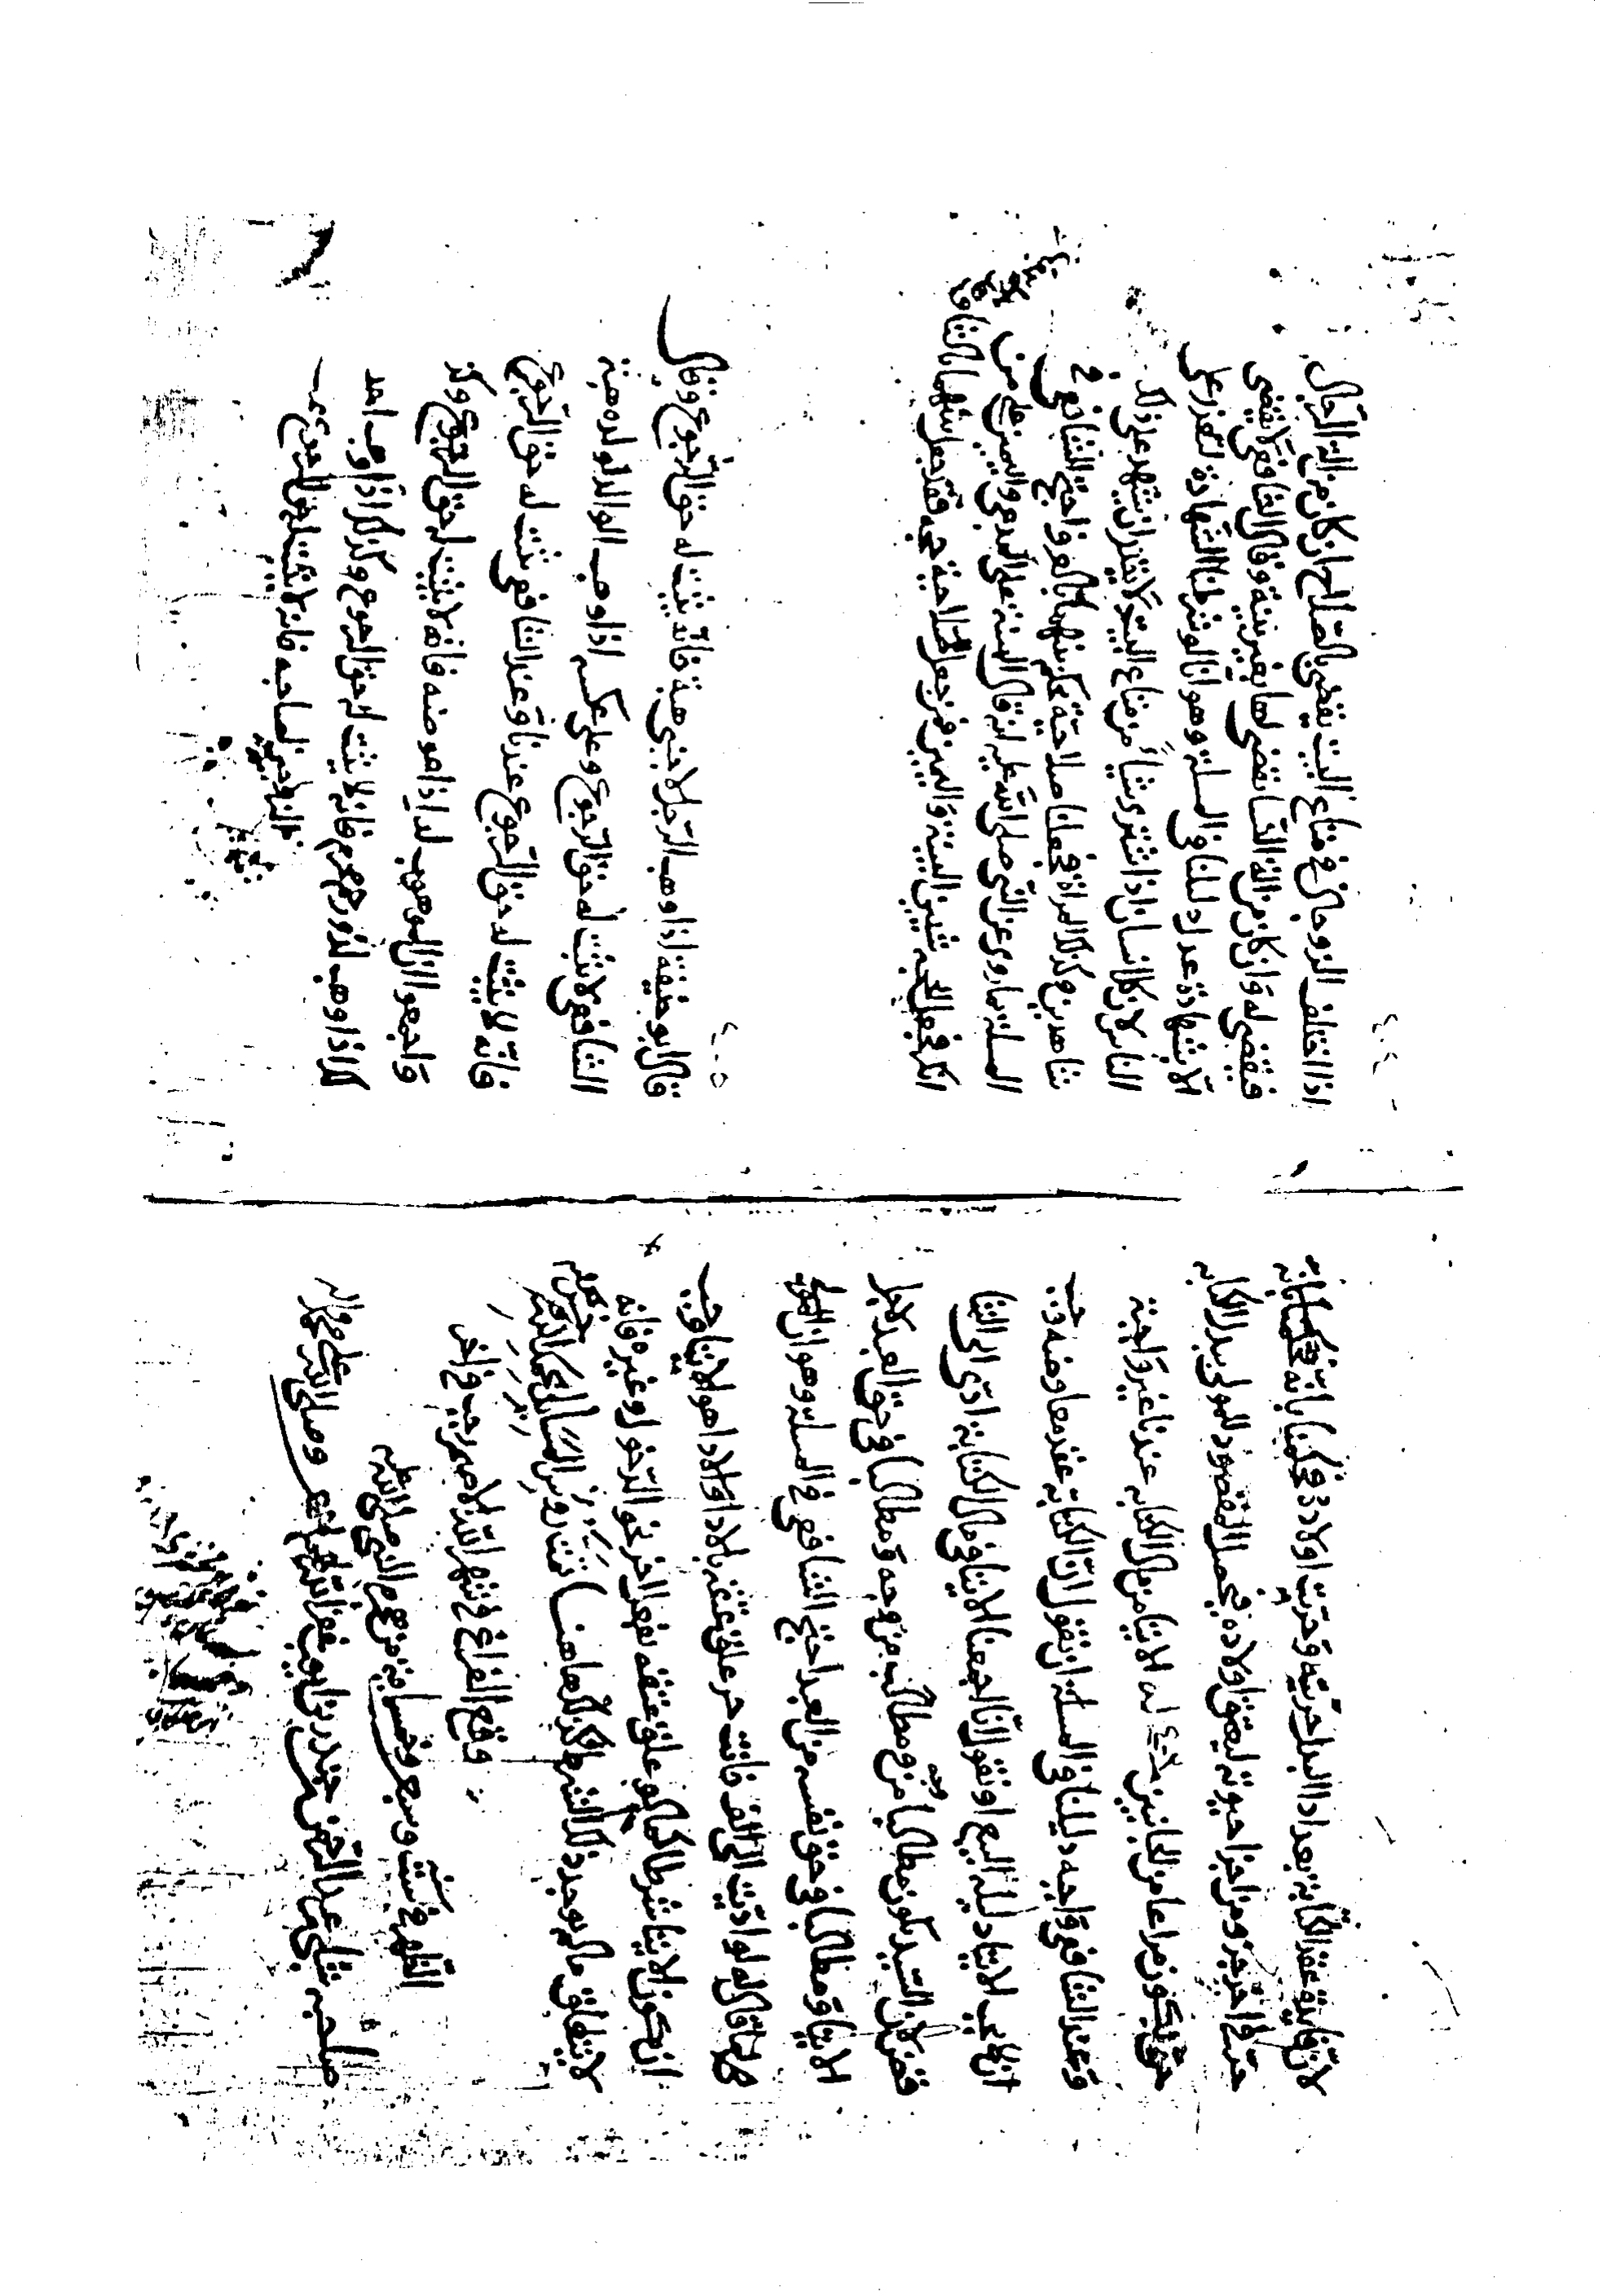 لانها بقية عقد الكتابة بعد اداء البدل حريته وحريت اولاده فحكمنا بانه
حرّ في اخر جزء من اجزاء حيوته ليعتق اولاده فيحصل المقصود للمولى ببدل الكتابة
حتى يكون مراعا من الجانبين لان الايتا من مال الكتابة عندنا غير واجبة
وعند الشافعي واجبه دليلنا في المسلة ان نقول ان الكتابة عقد معاوضه وجب
ان لا يجب الايتاء دليله البيع او نقول انا لو اجمعنا الايتا في مال الكتابة ادّى الى التنا
قض لان السيد يكون مطالبا من وجه ومطالبا في حق العبد لاجل
الايتا ومطالبا في حق نفسه من العبد احتج الشافعي في المسلة وهو ان المولى
ههنا قال له لو اديت الىّ الف فانت حر علق عتقه بالاداء والاداء هو الايتا وجب
ان يكون الايتا شرطا كما لو علق عتقه بفعل اخر نحو الدخول وغيره فانه
لا يعتق ما لم يوجد ذلك الشرط كذلك هاهنا تمت رووس المسايل بحمد الله وعونه
وقع الفراغ في شهر الله الاصم رجب في اخر
الشهر في سنت وسبع وخمسماية من هجرة النبي صلى الله عليه
صاحبه شبلى بن عبد الرحمن بن حيدر بن ابي وصلى الله على محمد واله
اذا اختلف الزوجان في متاع البيت يقضى بما يصلح ان كان من الة الرجال
فيقضى له وان كان من الة النسا يقضى لها بغير بينة وقال الشافعي لا يقضى
الا بشهادة عدل دليلنا في المسلة وهو انا لو شرطنا الشهادة لتعذر على
الناس لان كل انسان اذا اشترى شيئاً من متاع البيت لا يتيسر ان يشهد على ذلك
شاهدين فكذلك المراة فجعلنا صلاحية كل منهما كالعرف احتج الشافعي في
المسلة بما روى عن النبي صلى الله عليه انه قال البينة على المدعى واليمين على من
انكر فجعل الحجه شيئين البينة واليمين فمن جعل الصلاحية حجه فقد جعل
قال ابو حنيفة اذا وهب الرجل لاجنبى هبة فانه يثبت له حق الرجوع وقال
الشافعي لا يثبت له حق الرجوع وعلى عكسه اذا وهب الوالد لولده هبة
فانه لا يثبت له حق الرجوع عندنا وعند الشافعي يثبت له حق الرجوع
واجمعوا ان الموهوب له اذا عوضه منه فانه لا يثبت له حق الرجوع وكذ
لك اذا وهب لذى رحم محرم فانه لا يثبت له حق الرجوع وكذلك اذا وهب احد
الزوجين لصاحبه فانه لا يثبت له حق الرجوع